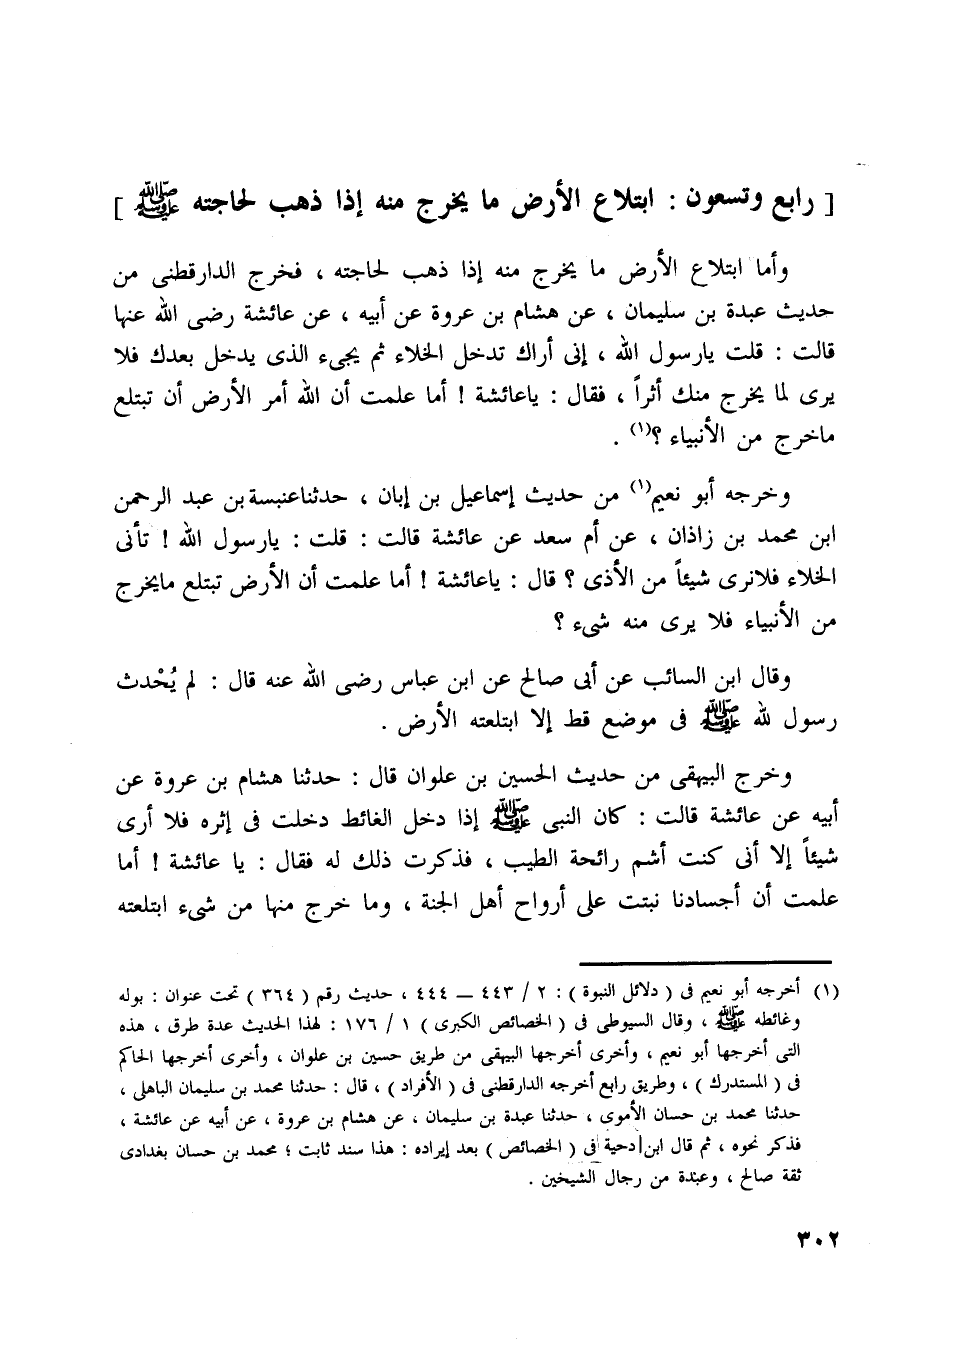 [ رابع وتسعون : ابتلاع الأرض ما يخرج منه إذا ذهب لحاجته ﷺ ]
وأما ابتلاع الأرض ما يخرج منه إذا ذهب لحاجته ، فخرج الدارقطنى من
حديث عبدة بن سليمان ، عن هشام بن عروة عن أبيه ، عن عائشة رضى الله عنها
قالت : قلت يارسول الله ، إنى أراك تدخل الخلاء ثم يجىء الذى يدخل بعدك فلا
يرى لما يخرج منك أثراً ، فقال : ياعائشة ! أما علمت أن الله أمر الأرض أن تبتلع
ماخرج من الأنبياء ؟(١) .
وخرجه أبو نعيم(١) من حديث إسماعيل بن إبان ، حدثناعنبسة بن عبد الرحمن
ابن محمد بن زاذان ، عن أم سعد عن عائشة قالت : قلت : يارسول الله ! تأتى
الخلاء فلانرى شيئاً من الأذى ؟ قال : ياعائشة ! أما علمت أن الأرض تبتلع مايخرج
من الأنبياء فلا يرى منه شىء ؟
وقال ابن السائب عن أبى صالح عن ابن عباس رضى الله عنه قال : لم يُحْدث
رسول لله ﷺ فى موضع قط إلا ابتلعته الأرض .
وخرج البيهقى من حديث الحسين بن علوان قال : حدثنا هشام بن عروة عن
أبيه عن عائشة قالت : كان النبى ﷺ إذا دخل الغائط دخلت فى إثره فلا أرى
شيئاً إلا أنى كنت أشم رائحة الطيب ، فذكرت ذلك له فقال : يا عائشة ! أما
علمت أن أجسادنا نبتت على أرواح أهل الجنة ، وما خرج منها من شىء ابتلعته
(١) أخرجه أبو نعيم فى ( دلائل النبوة ) : ٢ / ٤٤٣ ــ ٤٤٤ ، حديث رقم ( ٣٦٤ ) تحت عنوان : بوله
وغائطه ﷺ ، وقال السيوطى فى ( الخصائص الكبرى ) ١ / ١٧٦ : لهذا الحديث عدة طرق ، هذه
التى أخرجها أبو نعيم ، وأخرى أخرجها البيهقى من طريق حسين بن علوان ، وأخرى أخرجها الحاكم
فى ( المستدرك ) ، وطريق رابع أخرجه الدارقطنى فى ( الأفراد ) ، قال : حدثنا محمد بن سليمان الباهلى ،
حدثنا محمد بن حسان الأموى ، حدثنا عبدة بن سليمان ، عن هشام بن عروة ، عن أبيه عن عائشة ،
فذكر نحوه ، ثم قال ابن دحية فى ( الخصائص ) بعد إيراده : هذا سند ثابت ؛ محمد بن حسان بغدادى
ثقة صالح ، وعبدة من رجال الشيخين .
٣٠٢